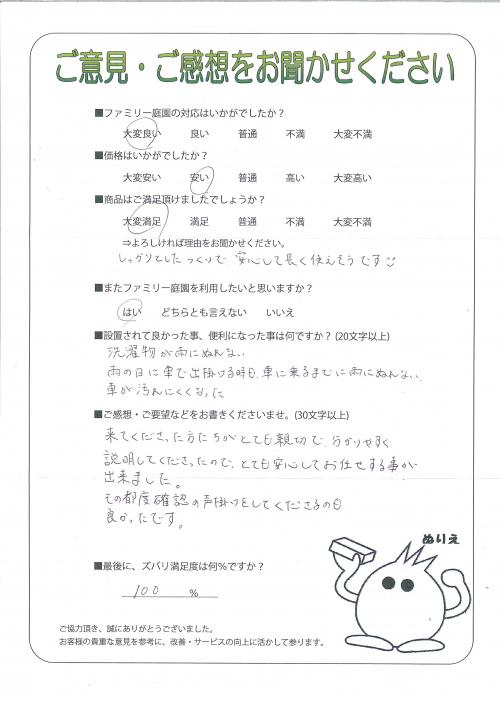 ご意見・ご感想をお聞かせください
■ファミリー庭園の対応はいかがでしたか？
大変良い　良い　普通　不満　大変不満
■価格はいかがでしたか？
大変安い　安い　普通　高い　大変高い
■商品はご満足頂けましたでしょうか？
大変満足　満足　普通　不満　大変不満
⇒よろしければ理由をお聞かせください。
しっかりとしたつくりで 安心して長く使えそうです
■またファミリー庭園を利用したいと思いますか？
はい　どちらとも言えない　いいえ
■設置されて良かった事、便利になった事は何ですか？(20文字以上)
洗濯物が雨にぬれない
雨の日に車で出掛ける時も、車に乗るまでに雨にぬれない
車が汚れにくくなった
■ご感想・ご要望などをお書きくださいませ。(30文字以上)
来てくださった方たちがとても親切で、分かりやすく
説明してくださったので、とても安心してお任せする事が
出来ました。
その都度確認の声掛けをしてくださるのも
良かったです。
ぬりえ
■最後に、ズバリ満足度は何%ですか？
100 %
ご協力頂き、誠にありがとうございました。
お客様の貴重な意見を参考に、改善・サービスの向上に活かして参ります。